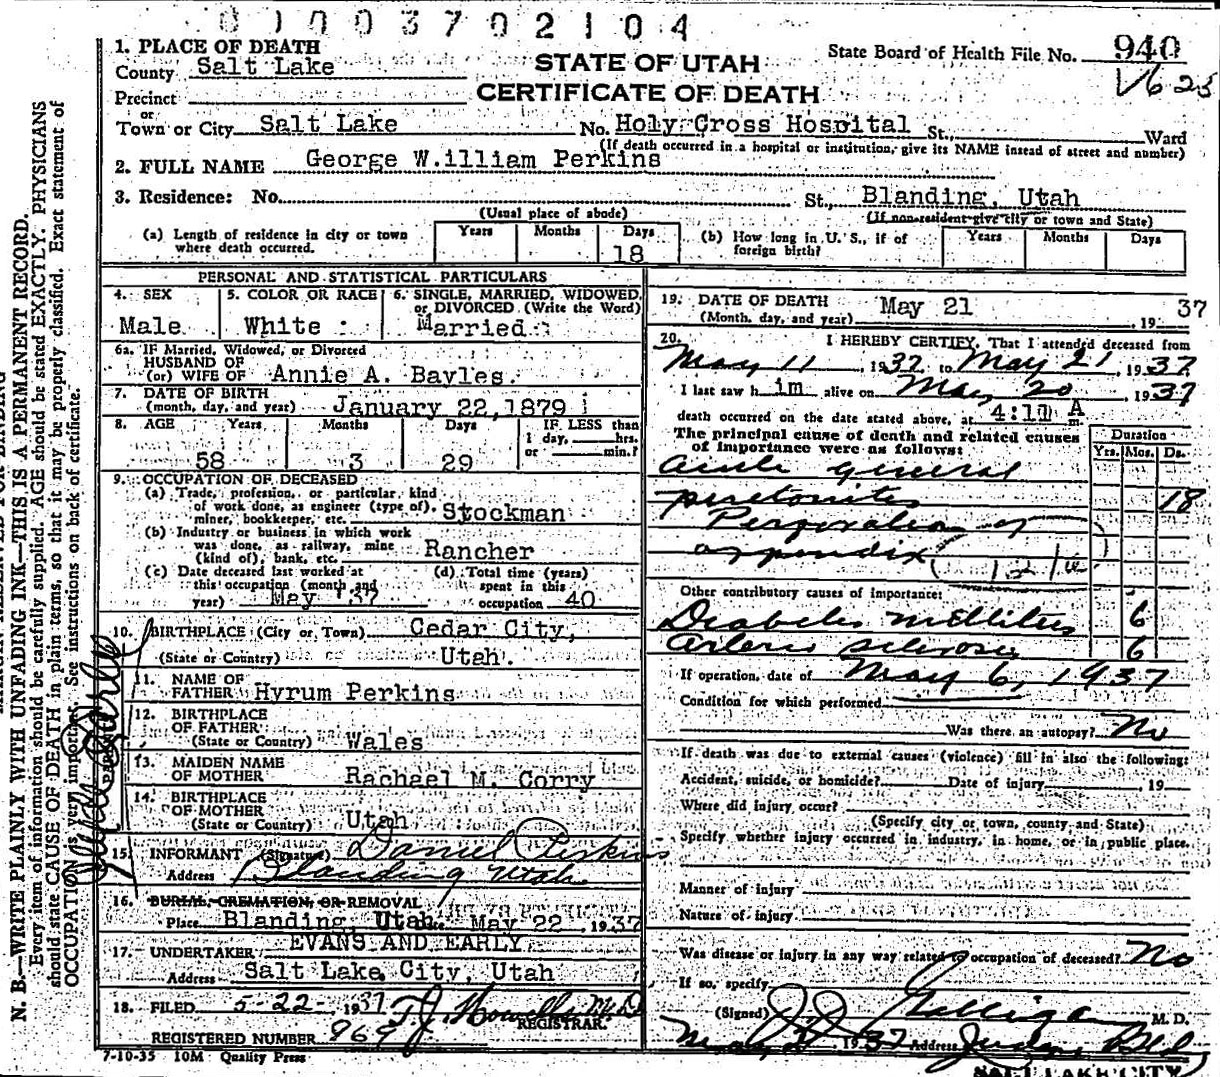 01003702104
1. PLACE OF DEATH
County Salt Lake
STATE OF UTAH
State Board of Health File No. 940
Precinct
CERTIFICATE OF DEATH
or
Town or City Salt Lake No. Holy Cross Hospital St., Ward
(If death occurred in a hospital or institution, give its NAME instead of street and number)
2. FULL NAME George W.illiam Perkins
3. Residence: No. St., Blanding, Utah
(Usual place of abode) (If non-resident give city or town and State)
(a) Length of residence in city or town where death occurred. Years Months Days 18
(b) How long in U. S., if of foreign birth? Years Months Days
PERSONAL AND STATISTICAL PARTICULARS
4. SEX 5. COLOR OR RACE 6. SINGLE, MARRIED, WIDOWED, or DIVORCED (Write the Word)
Male White Married
6a. IF Married, Widowed, or Divorced
HUSBAND OF
(or) WIFE OF Annie A. Bayles.
7. DATE OF BIRTH
(month, day, and year) January 22, 1879
8. AGE Years Months Days IF LESS than
1 day, hrs.
or min.?
58 3 29
9. OCCUPATION OF DECEASED
(a) Trade, profession, or particular kind
of work done, as engineer (type of),
miner, bookkeeper, etc. Stockman
(b) Industry or business in which work
was done, as railway, mine
(kind of), bank, etc. Rancher
(c) Date deceased last worked at
this occupation (month and
year) May '37
(d) Total time (years)
spent in this
occupation 40
10. BIRTHPLACE (City or Town) Cedar City,
(State or Country) Utah.
11. NAME OF
FATHER Hyrum Perkins
12. BIRTHPLACE
OF FATHER
(State or Country) Wales
13. MAIDEN NAME
OF MOTHER Rachael M. Corry
14. BIRTHPLACE
OF MOTHER
(State or Country) Utah
15. INFORMANT (Signature) Daniel Perkins
Address Blanding Utah
16. BURIAL, CREMATION, OR REMOVAL
Place Blanding, Utah May 22, 1937
17. UNDERTAKER EVANS AND EARLY
Address Salt Lake City, Utah
18. FILED 5-22-1937 T. J. Howells M.D.
REGISTRAR.
REGISTERED NUMBER 869
7-10-35 10M Quality Press
19. DATE OF DEATH May 21
(Month, day, and year) , 19 37
20. I HEREBY CERTIFY, That I attended deceased from
May 11, 1937 to May 21, 1937
I last saw h im alive on May 20 1937
death occurred on the date stated above, at 4:10 A m.
The principal cause of death and related causes
of importance were as follows:
Duration
Yrs. Mos. Ds.
acute general
peretonites 18
Perforation of
appendix
Other contributory causes of importance:
Diabetes mellitus 6
Arterio sclerosis 6
If operation, date of May 6, 1937
Condition for which performed
Was there an autopsy? No
If death was due to external causes (violence) fill in also the following:
Accident, suicide, or homicide? Date of injury , 19
Where did injury occur?
(Specify city or town, county and State)
Specify whether injury occurred in industry, in home, or in public place.
Manner of injury
Nature of injury
Was disease or injury in any way related occupation of deceased? No
If so, specify
(Signed) J. J. Galligan M. D.
1937 Address Judge Bld
SALT LAKE CITY
N. B.—WRITE PLAINLY WITH UNFADING INK—THIS IS A PERMANENT RECORD.
Every item of information should be carefully supplied. AGE should be stated EXACTLY. PHYSICIANS
should state CAUSE OF DEATH in plain terms, so that it may be properly classified. Exact statement of
OCCUPATION is very important. See instructions on back of certificate.